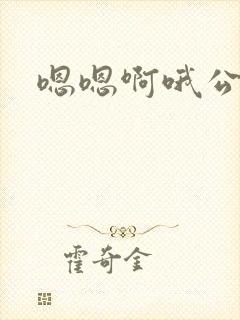 嗯嗯啊哦公
霍奇金